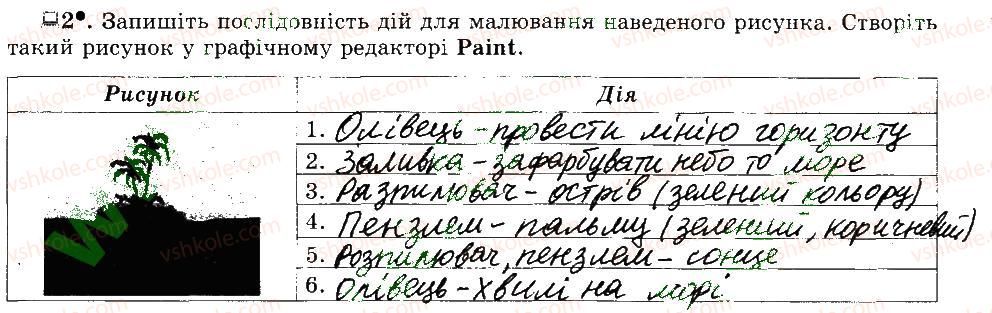 2•. Запишіть послідовність дій для малювання наведеного рисунка. Створіть
такий рисунок у графічному редакторі Paint.
Рисунок
Дія
1. Олівець - провести лінію горизонту
2. Заливка - зафарбувати небо то море
3. Разпилювач - острів (зелений кольору)
4. Пензлем - пальму (зелений, коричневий)
5. Розпилювач, пензлем - сонце
6. Олівець - хвилі на морі